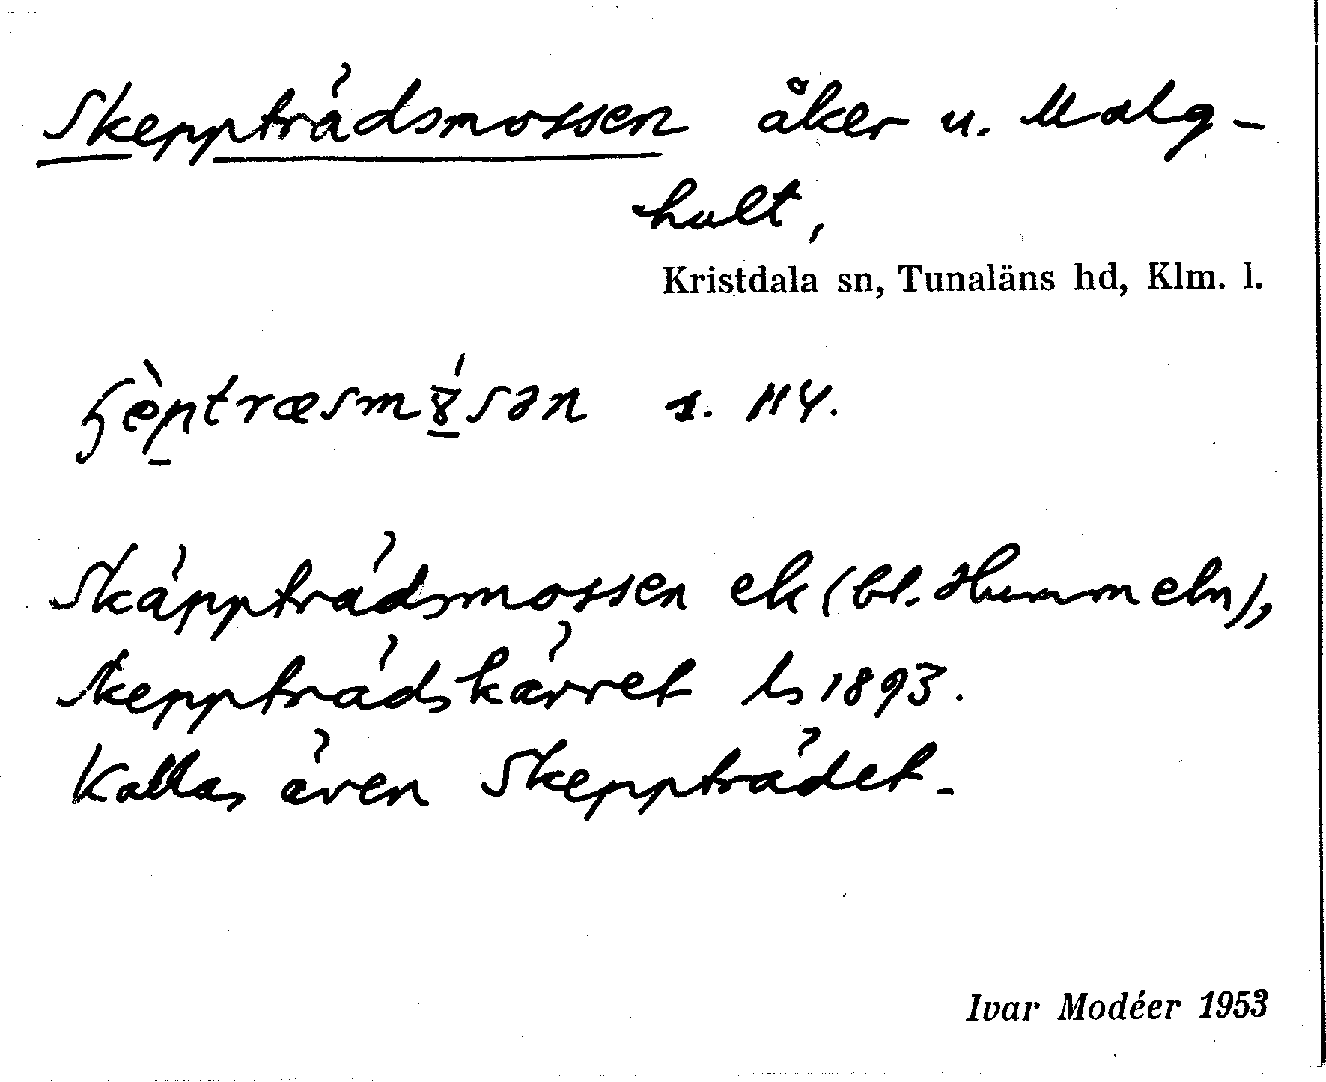 Skeppträdsmossen åker u. Malg-
hult,
Kristdala sn, Tunaläns hd, Klm. l.
s. 114.
Skäppträdsmossen ek (bl. Hummeln),
Skeppträdskärret ls 1893.
Kallas även Skeppträdet.
Ivar Modéer 1953